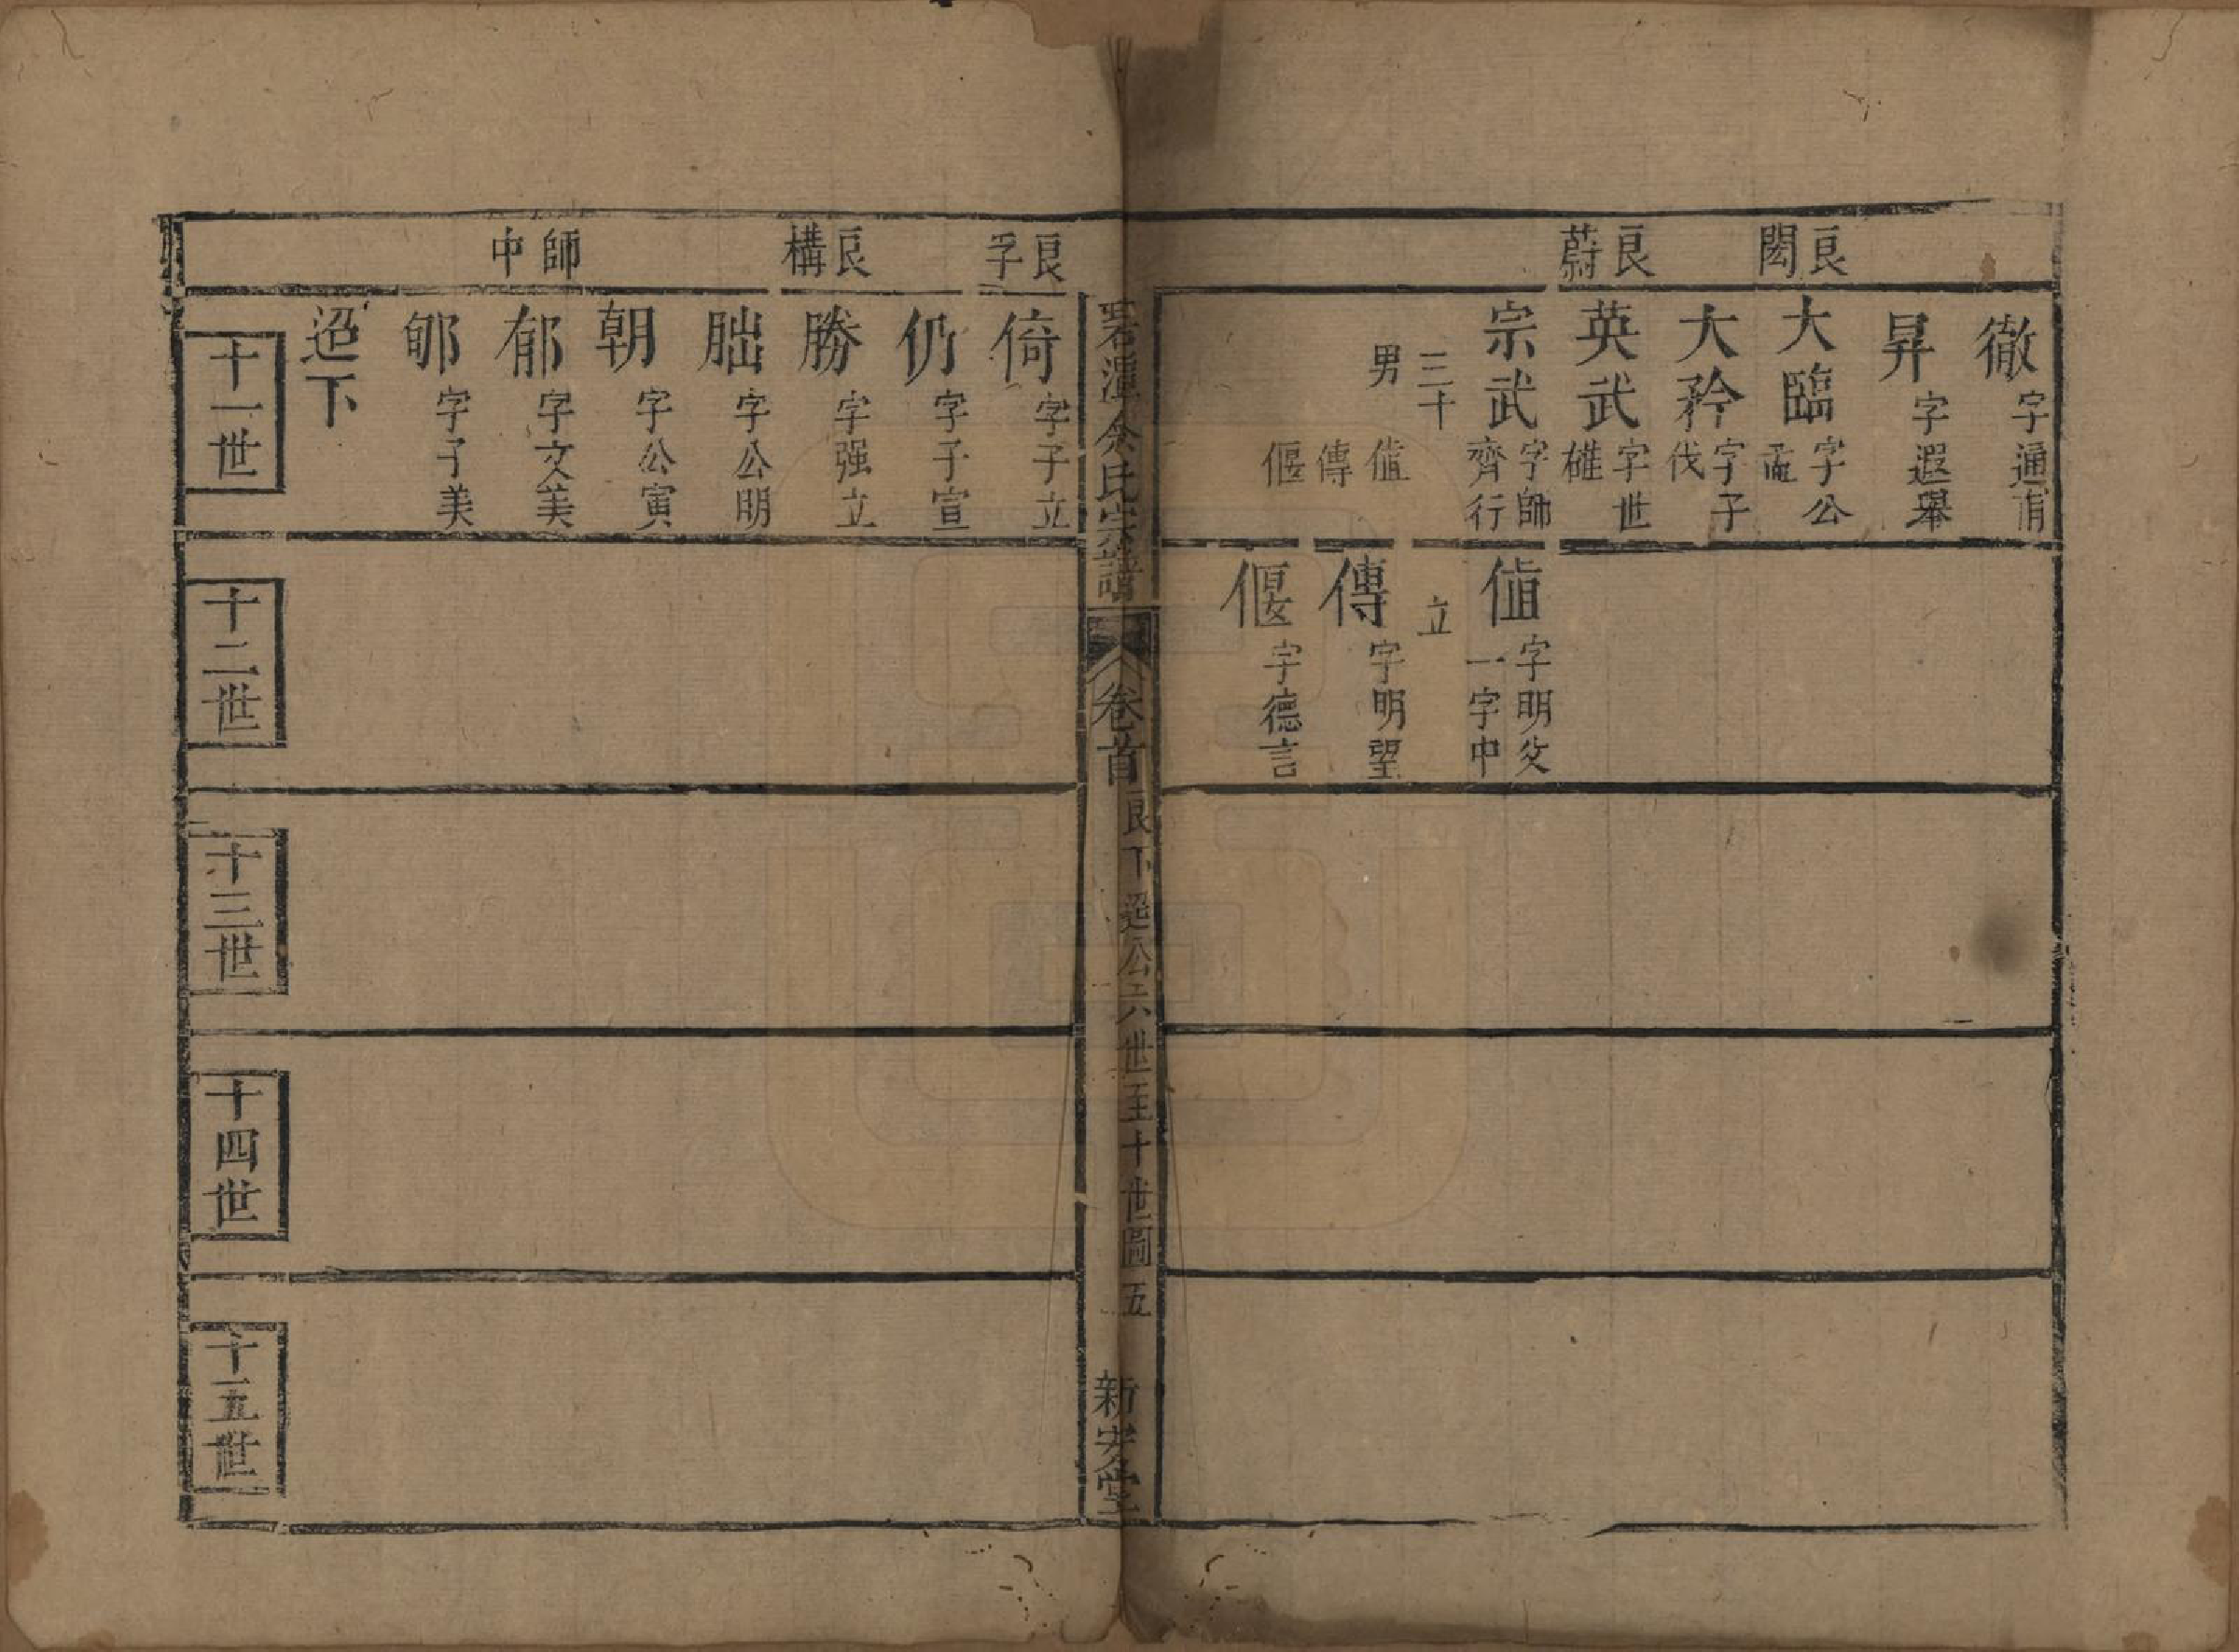 良閎
良蔚
徹 字通甫
昇 字遐舉
大臨 字公孟
大矜 字子伐
英武 字世
宗武 字師齊行
三十
男 值
傳
偃
值 字明父 一字中
立
傳 字明望
偃 字德言
余氏宗譜 卷首 良下 公六世至十世圖 五 新安堂
良孚
良構
師中
倚 字子立
仍 字子宣
勝 字强立
朏 字公明
朝 字公寅
郁 字文美
郇 字子美
迢下
十一世
十二世
十三世
十四世
十五世